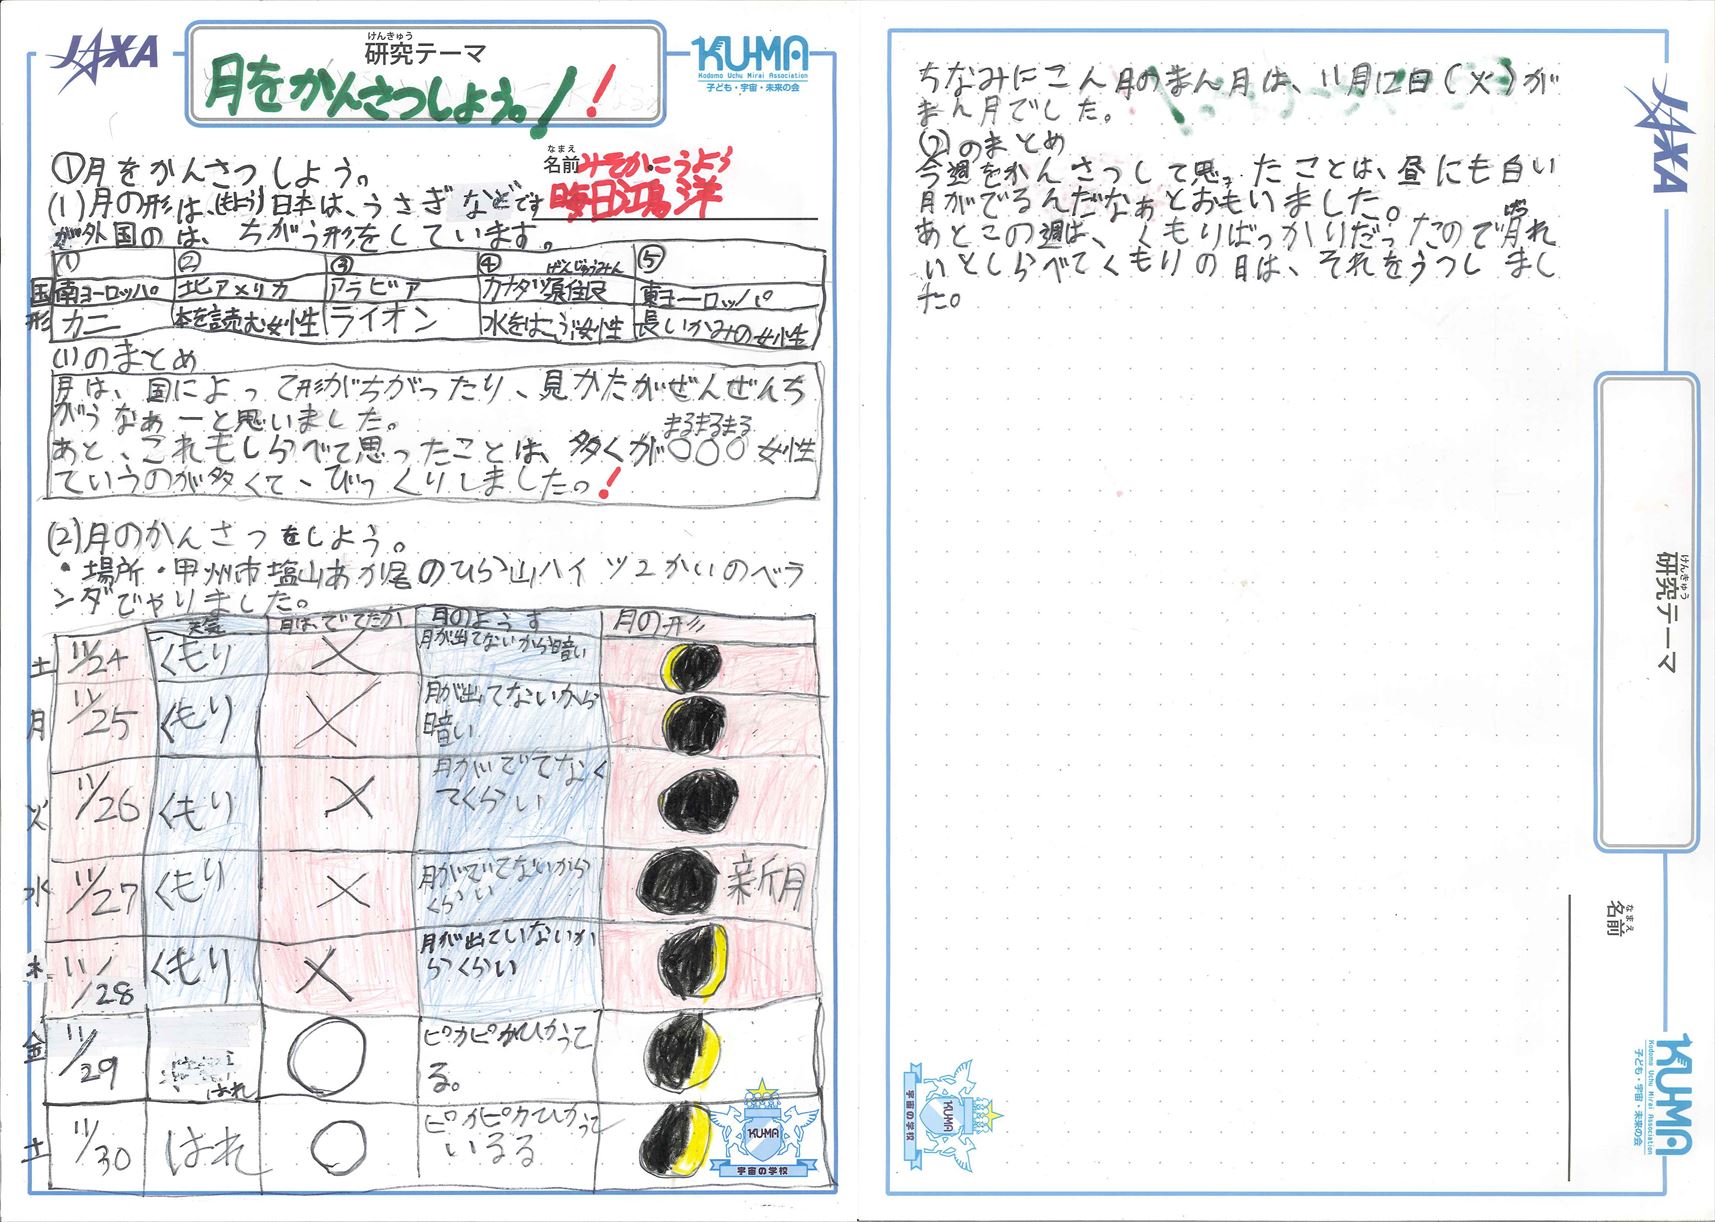 JAXA
けんきゅう
研究テーマ
月をかんさつしよう。!!
KU-MA
Kodomo Uchu Mirai Association
子ども・宇宙・未来の会
なまえ
名前 みそかにうよう
晦日江鳥洋
①月をかんさつしよう。
(1)月の形は、日本は、うさぎなどです
が外国のは、ちがう形をしています。
① ② ③ ④ ⑤
げんじゅうみん
国 南ヨーロッパ 北アメリカ アラビア カナダ 東ヨーロッパ
形 カニ 本を読む女性 ライオン 水をはこぶ女性 長いかみの女性
(1)のまとめ
月は、国によって形がちがったり、見かたがぜんぜんち
がうなぁーと思いました。
まるまるまる
あと、これもしらべて思ったことは、多くが○○○女性
ていうのが多くて、びっくりしました。!
(2)月のかんさつをしよう。
・場所・甲州市塩山あか尾のひら山ハイツ2かいのベラ
ンダでやりました。
天気 月はでてたか 月のようす 月の形
土 11/24 くもり × 月が出てないから暗い
月 11/25 くもり × 月が出てないから
暗い
火 11/26 くもり × 月がでてなく
てくらい
水 11/27 くもり × 月がでてないから
くらい 新月
木 11/28 くもり × 月が出ていないか
らくらい
金 11/29 はれ ○ ピカピカひかって
る。
土 11/30 はれ ○ ピカピカひかって
いるる
KU-MA
宇宙の学校
ちなみにこん月のまん月は、11月12日(火)が
まん月でした。
(2)のまとめ
今週をかんさつして思ったことは、昼にも白い
月がでるんだなぁとおもいました。
あとこの週は、くもりばっかりだったので月れ
いとしらべてくもりの日は、それをうつしまし
た。
JAXA
けんきゅう
研究テーマ
なまえ
名前
KU-MA
Kodomo Uchu Mirai Association
子ども・宇宙・未来の会
KU-MA
宇宙の学校